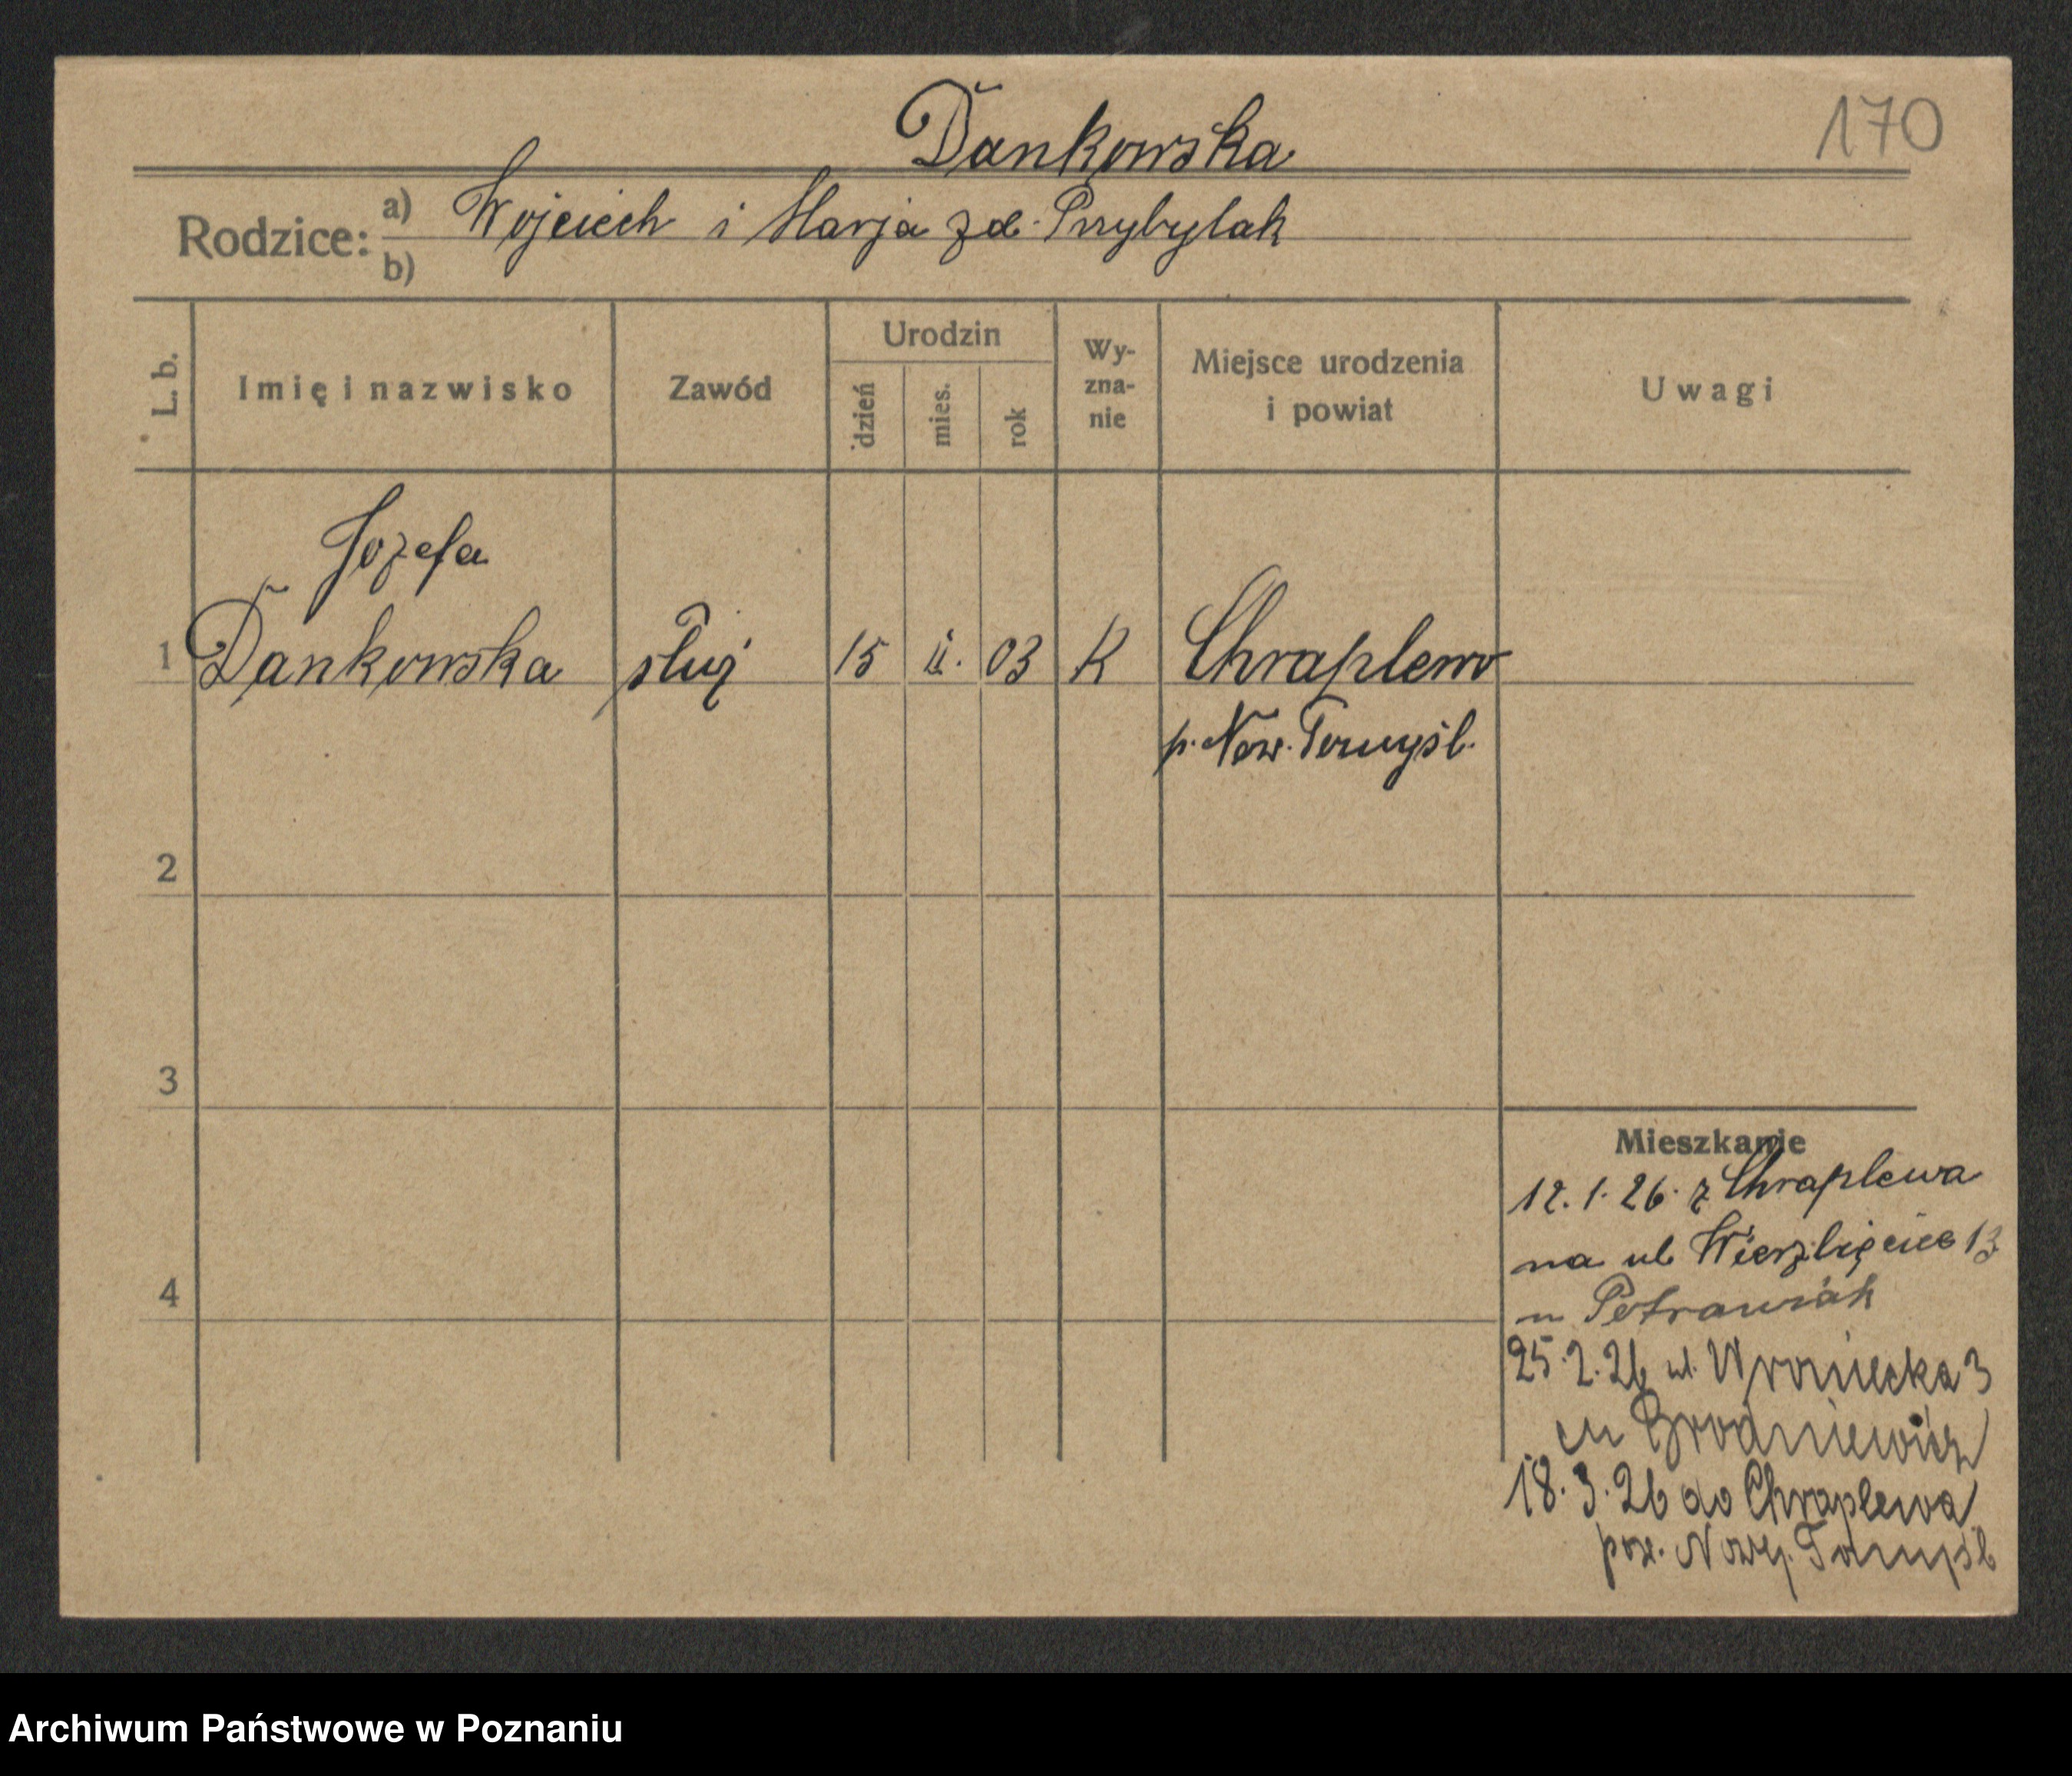 170
Dankowska
Rodzice: a) Wojciech i Marja zd. Przybylak
b)
L. b. Imię i nazwisko Zawód Urodzin dzień mies. rok Wy-zna-nie Miejsce urodzenia i powiat Uwagi
Jozefa
1 Dankowska służ 15 II. 03 K Chraplewo
p. Now. Tomyśl.
2
3
Mieszkanie
12. 1. 26. z Chraplewa
na ul Wierzbięcice 13
4
u Petrawiak
25. 2. 26 ul. Wroniecka 3
u Brodniewicz
18. 3. 26 do Chraplewa
pow. Nowy. Tomyśl
Archiwum Państwowe w Poznaniu